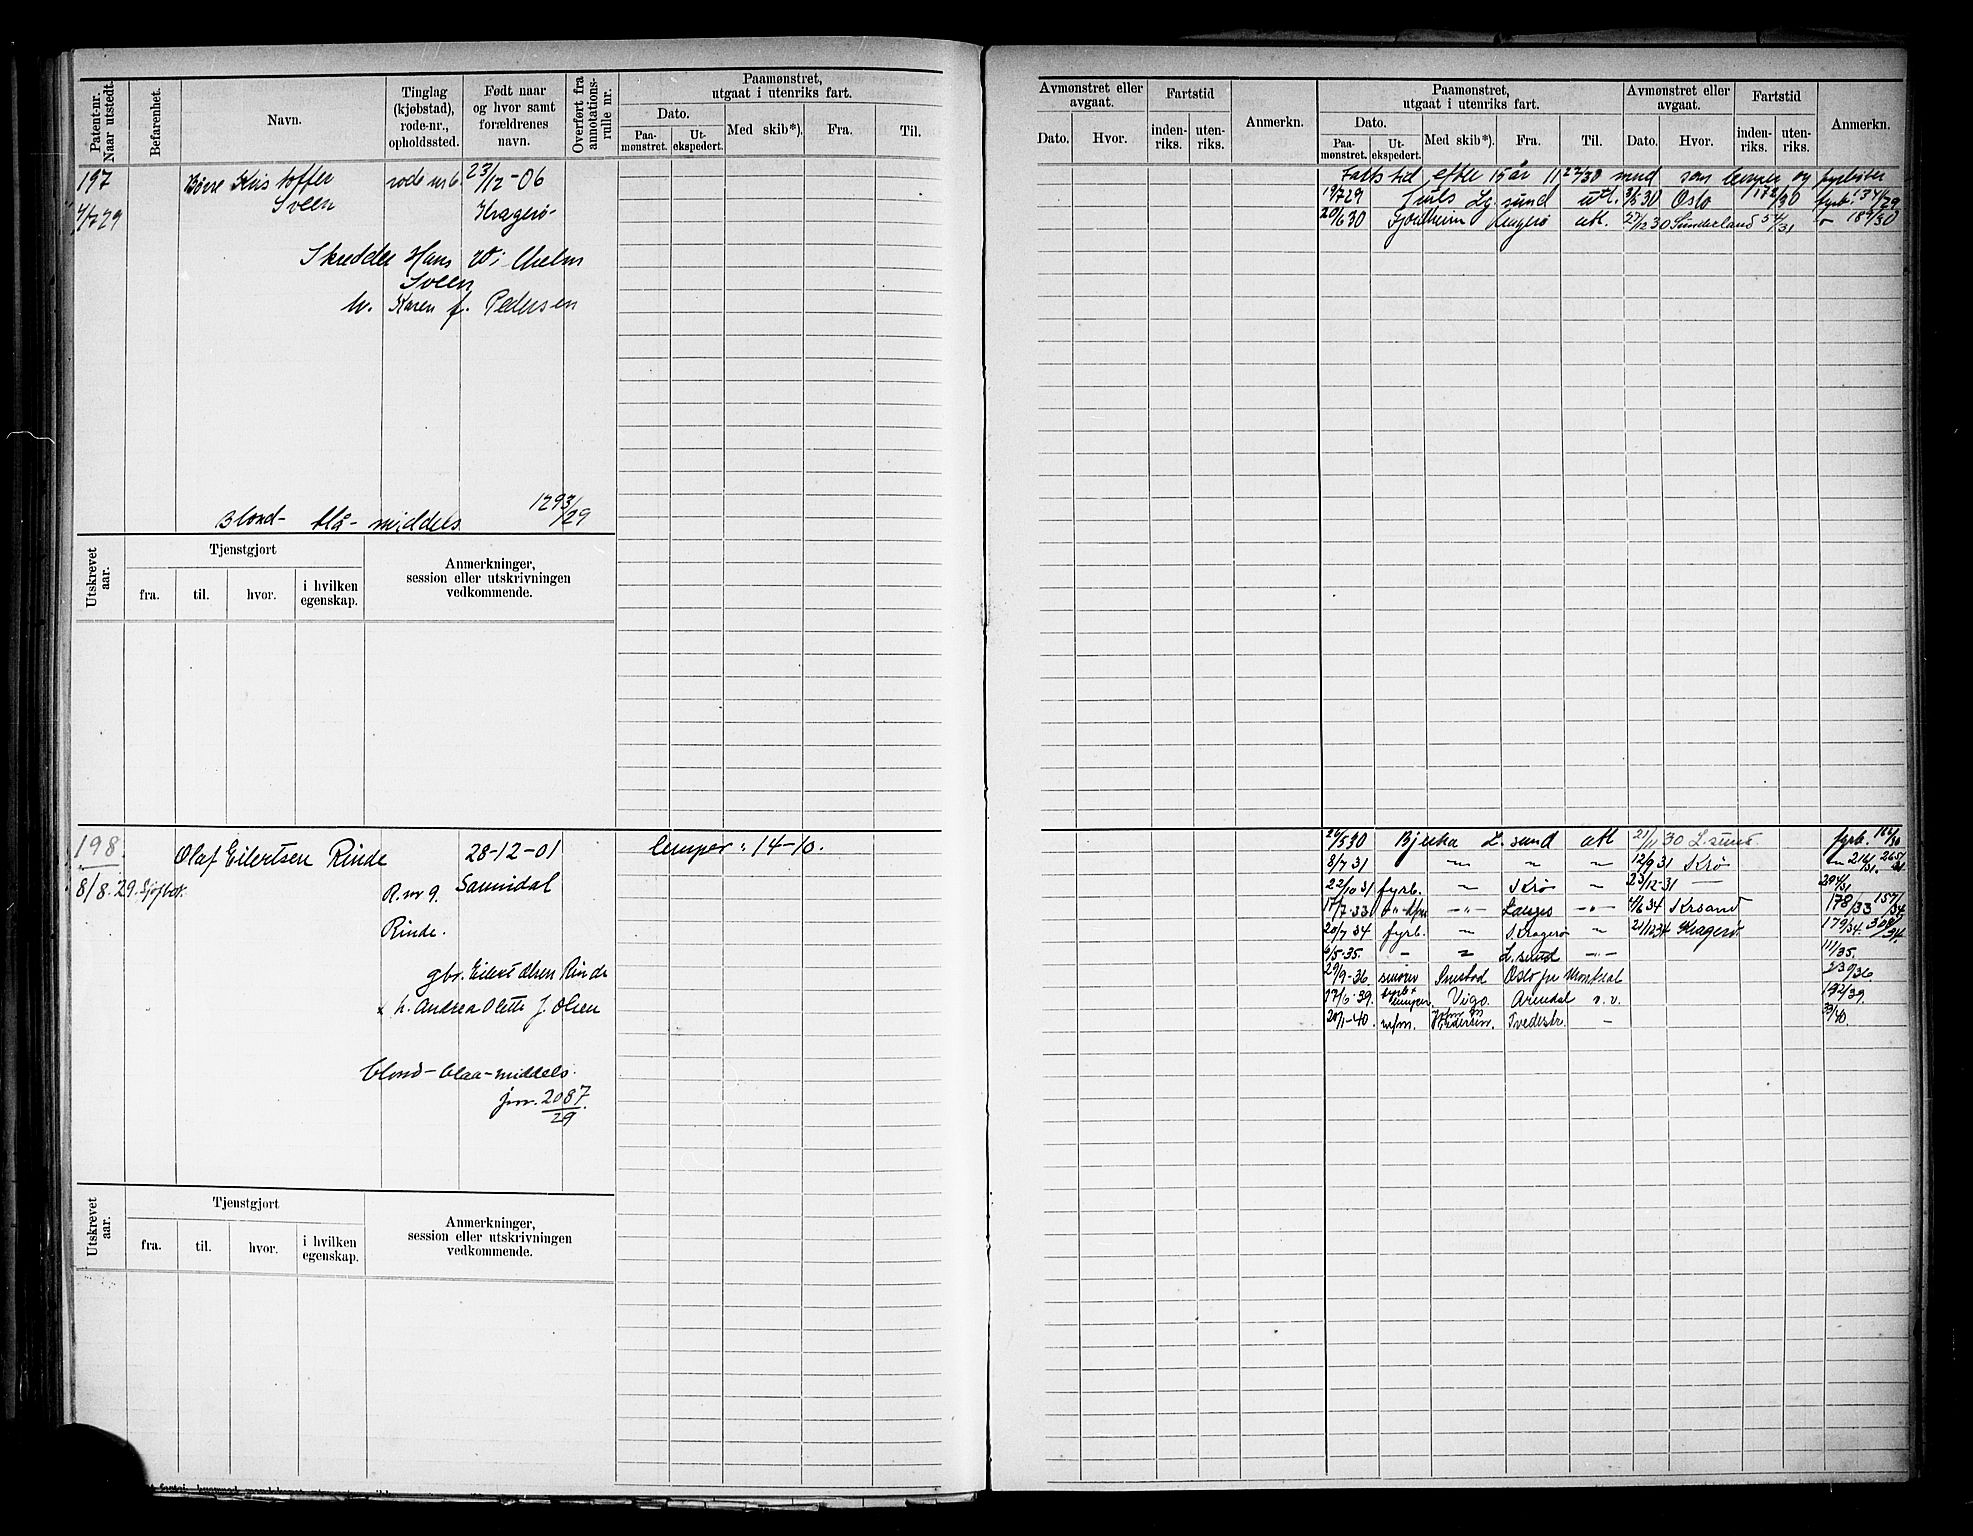 Patent-nr. Naar utstedt.
Befarenhet.
Navn.
Tinglag (kjøbstad), rode-nr., opholdssted.
Født naar og hvor samt forældrenes navn.
Overført fra annotations-rulle nr.
Paamønstret, utgaat i utenriks fart.
Dato.
Paa-mønstret.
Ut-ekspedert.
Med skib*).
Fra.
Til.
197
4/7 29
Børre Kristoffer
Sveen
rode nr 6
23/12-06
Kragerø-
Skredder Hans Vilhelm
Sveen
h. Karen f. Pedersen
1293/29
Blond- blå- middels
Utskrevet aar.
Tjenstgjort
fra.
til.
hvor.
i hvilken egenskap.
Anmerkninger, session eller utskrivningen vedkommende.
198
8/8.29.
Olaf Eilertsen Rinde
28-12-01
lemper: 14-10.
R.nr 9.
Sannidal
Rinde.
gbr. Eilert Olsen Rinde
h. Andrea Olette J. Olsen
blond-blaa-middels.
jnr. 2087
29
Utskrevet aar.
Tjenstgjort
fra.
til.
hvor.
i hvilken egenskap.
Anmerkninger, session eller utskrivningen vedkommende.
Avmønstret eller avgaat.
Dato.
Hvor.
Fartstid
inden-riks.
uten-riks.
Anmerkn.
Paamønstret, utgaat i utenriks fart.
Dato.
Paa-mønstret.
Ut-ekspedert.
Med skib*).
Fra.
Til.
Avmønstret eller avgaat.
Dato.
Hvor.
Fartstid
inden-riks.
uten-riks.
Anmerkn.
efter 15 år som lemper og fyrbøter
19/7 29 Lg. sund utl. Oslo fyrb. 134/29
20/6 30 Fjordheim Kragerø utl. 27/12 30 Sunderland 54/31 184/30
26/5 30 Bjerka L. sund utl 21/11 30 L. sund fyrb.
8/7 31 12/9 31 Krø
22/10 31 fyrb. Krø 23/12-31
17/7-33 4/6 34 Krsand 178/33 157/34
20/7 34 fyrb. Kragerø 21/12 34 Kragerø. 179/34.
6/5-35. L. sund 111/35.
29/9-36 Oslo Montreal 239/36
17/6-39. fyrb + lemper. Vigo. Arendal n.v. 192/39.
20/1-40 Tvedestr. 33/40.